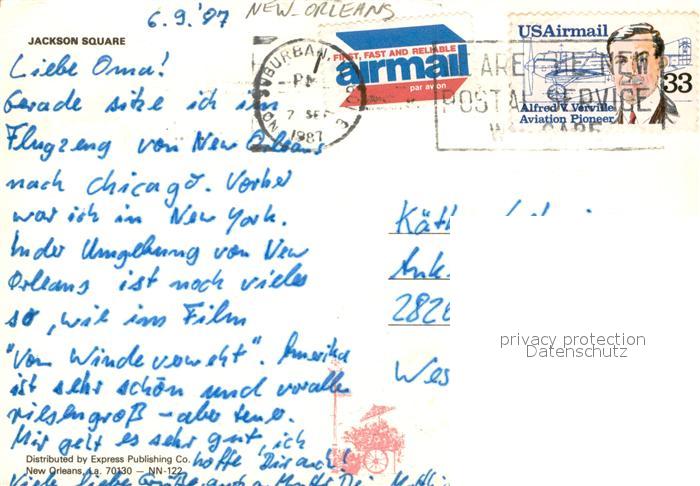 6.9.'87 NEW ORLEANS
JACKSON SQUARE
Liebe Oma!
Gerade sitze ich im
Flugzeug von New Orleans
nach Chicago. Vorher
war ich in New York.
In der Umgebung von New
Orleans ist noch vieles
so, wie im Film
"Vom Winde verweht". Amerika
ist sehr schön und vorallem
riesengroß - aber teuer.
Mir geht es sehr gut, ich
hoffe Dir auch!
Viele liebe Grüße auch an
Distributed by Express Publishing Co.
New Orleans, La. 70130 — NN-122
FIRST, FAST AND RELIABLE
airmail
par avion
SUBURBAN
PM
7 SEP
1987
ARE THE NEW
POSTAL SERVICE
WE CARE
USAirmail
33
Alfred V. Verville
Aviation Pioneer
Käth
Ank
2820
Wes
privacy protection
Datenschutz